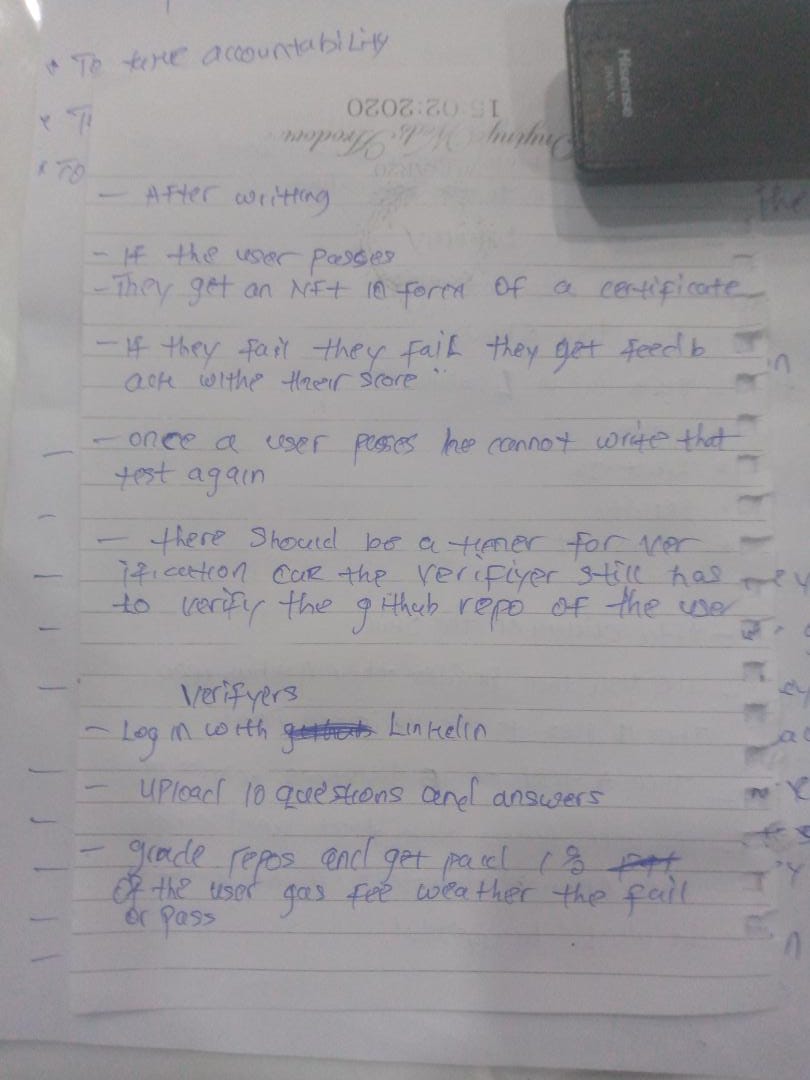 • To take accountability
15:02:2020
Hisense
- After writing
The
- If the user passes
- They get an NFT in form of a certificate
- If they fail they fail they get feedb
ack withe their score
- once a user passes he cannot write that
test again
- there should be a timer for ver
ification cuz the verifiyer still has
to verify the github repo of the user
Verifyers
- Log in with Linkedin
- Upload 10 questions and answers
- grade repos and get paid 1%
of the user gas fee weather the fail
or pass